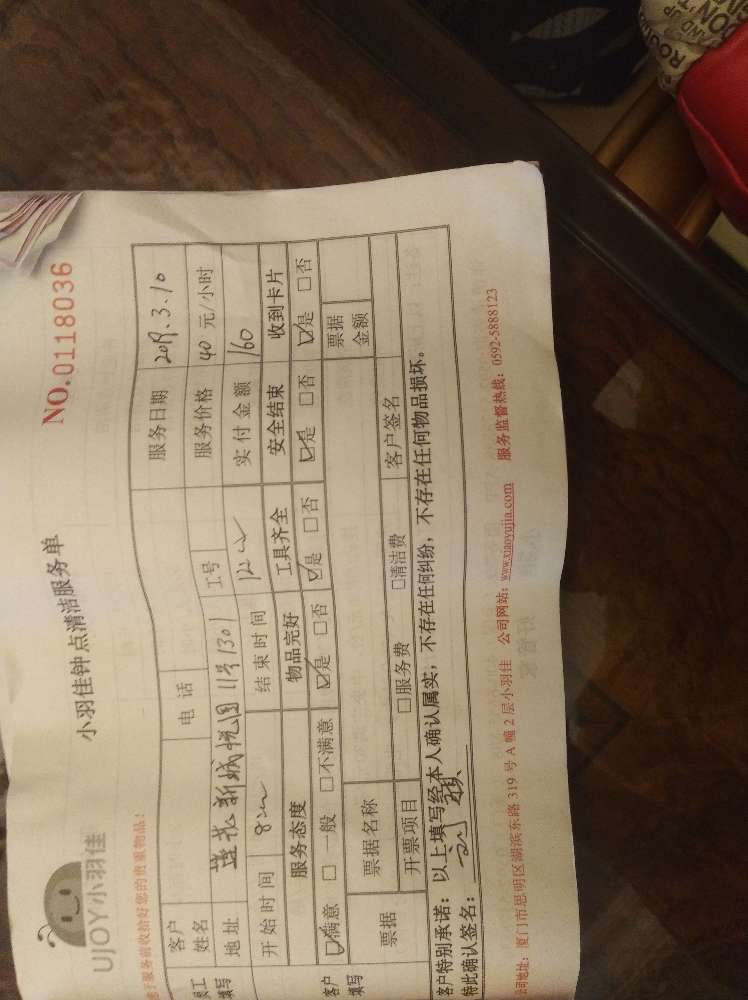 UJOY小羽佳
小羽佳钟点清洁服务单
NO.0118036
于服务前收拾好您的贵重物品！
客户姓名 电话 服务日期 2019.3.10
地址 莲花新城悦园11号1301 工号 服务价格 40元/小时
开始时间 8:00 结束时间 12:00 实付金额 160
服务态度 物品完好 工具齐全 安全结束 收到卡片
☑满意 □一般 □不满意 ☑是 □否 ☑是 □否 ☑是 □否 ☑是 □否
员工填写
客户填写
票据 票据名称 票据金额
开票项目 □服务费 □清洁费 客户签名
客户特别承诺：以上填写经本人确认属实，不存在任何纠纷，不存在任何物品损坏。
特此确认签名：
公司地址：厦门市思明区湖滨东路319号A幢2层小羽佳 公司网站：www.xiaoyujia.com 服务监督热线：0592-5888123